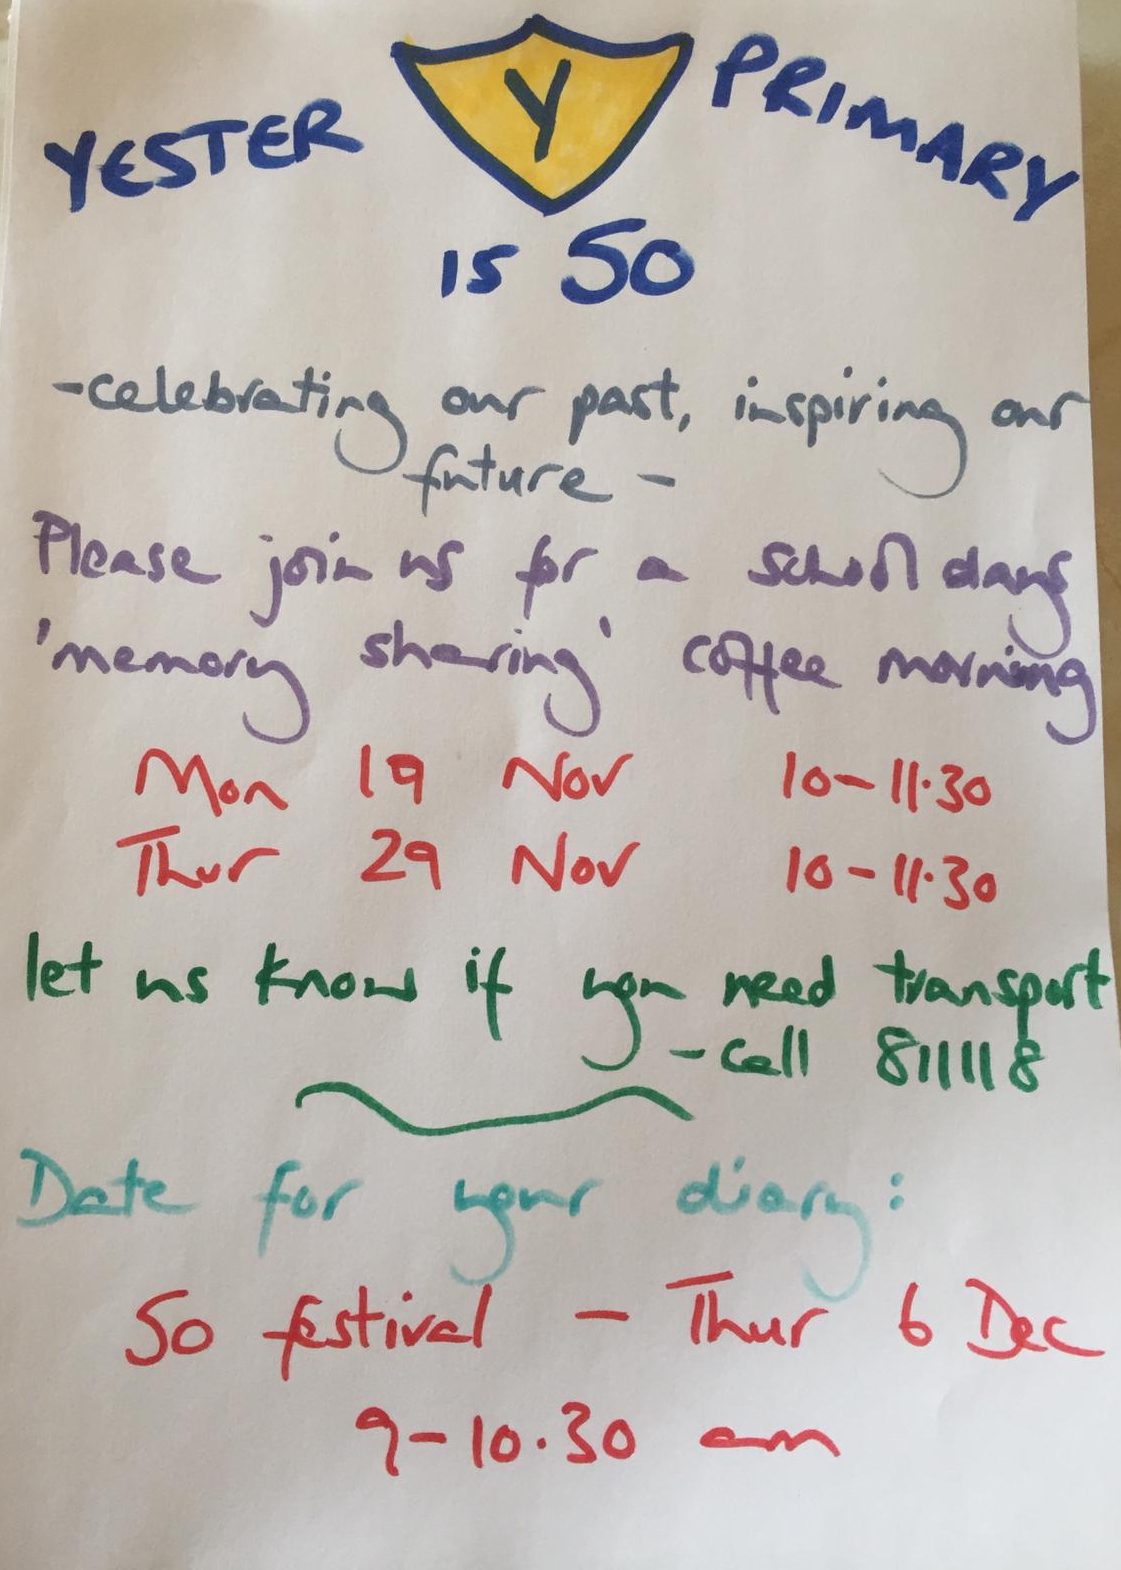 YESTER Y PRIMARY
IS 50
-celebrating our past, inspiring our
future -
Please join us for a school days
'memory sharing' coffee morning
Mon 19 Nov 10-11.30
Thur 29 Nov 10-11.30
let us know if you need transport
- call 811118
Date for your diary:
50 festival - Thur 6 Dec
9-10.30 am